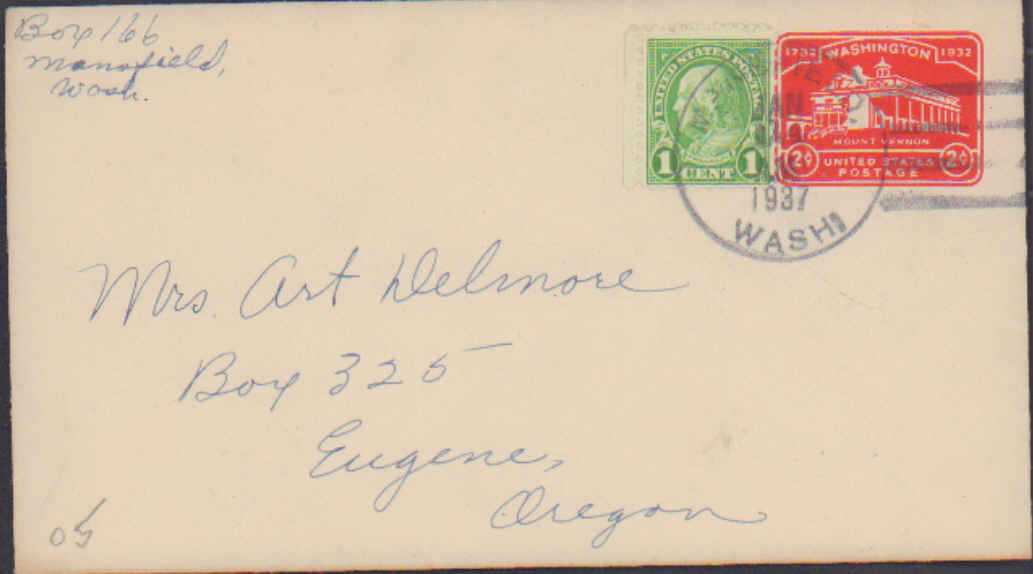 Box 166
Mansfield,
Wash.
UNITED STATES POSTAGE
1 CENT 1
1732 WASHINGTON 1932
MOUNT VERNON
2¢ UNITED STATES 2¢
POSTAGE
JAN
1937
WASH
Mrs. Art Delmore
Box 325
Eugene,
Oregon